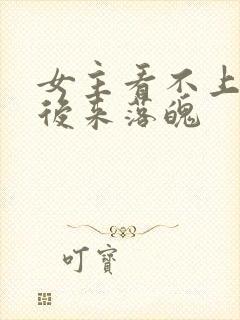 女主看不上
後来落魄
叮寶